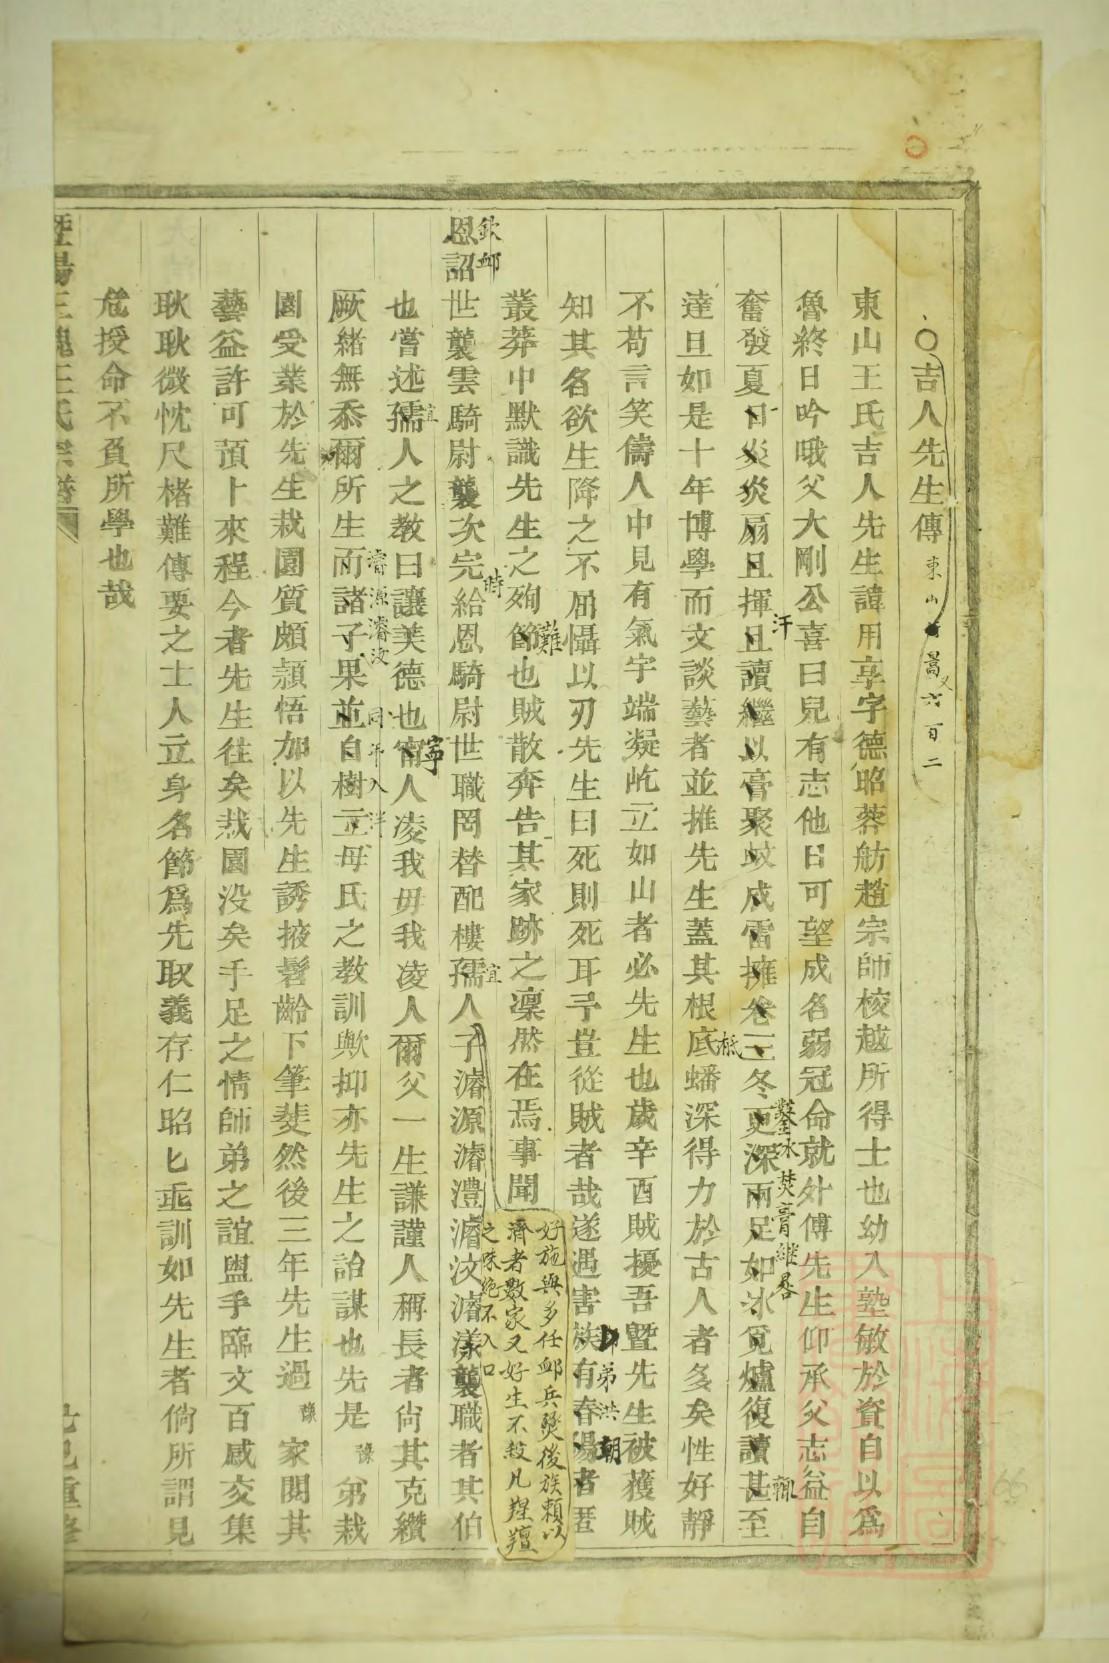 ○吉人先生傳 東山 暠又六百二
東山王氏吉人先生諱用享字德昭蓉舫趙宗師校越所得士也幼入塾敏於資自以爲
魯終日吟哦父大剛公喜曰兒有志他日可望成名弱冠命就外傅先生仰承父志益自
奮發夏日炎炎扇且揮且讀繼以膏聚蚊成雷擁卷三冬更深雨足如冰覓爐復讀甚至
汗
鑿冰焚膏継晷
輒
達旦如是十年博學而文談藝者並推先生蓋其根底蟠深得力於古人者多矣性好靜
柢
不苟言笑儔人中見有氣宇端凝屹立如山者必先生也歲辛酉賊擾吾暨先生被獲賊
知其名欲生降之不屈懾以刃先生曰死則死耳予豈從賊者哉遂遇害族有春陽者匿
弟洪朝
叢莽中默識先生之殉節也賊散奔告其家跡之凜然在焉事聞
難
好施與多任卹兵燹後族賴以
濟者數家又好生不殺凡羥羶
之味絶不入口
欽卹
恩詔世襲雲騎尉襲次完給恩騎尉世職罔替配樓孺人子濬源濬澧濬汶濬漾襲職者其伯
時
宜
也嘗述孺人之教曰讓美德也甯人凌我毋我凌人爾父一生謙謹人稱長者尙其克纘
宜
寧
厥緒無忝爾所生而諸子果並自樹立母氏之教訓歟抑亦先生之詒謀也先是 弟栽
濬源濬汶 同年入泮
豫
園受業於先生栽園質頗頴悟加以先生誘掖髫齡下筆斐然後三年先生過 家閱其
豫
藝益許可預卜來程今者先生往矣栽園没矣手足之情師弟之誼盥手臨文百感交集
耿耿微忱尺楮難傳要之士人立身名節爲先取義存仁昭匕垂訓如先生者倘所謂見
危授命不負所學也哉
暨陽王氏宗譜
七巳重修
66